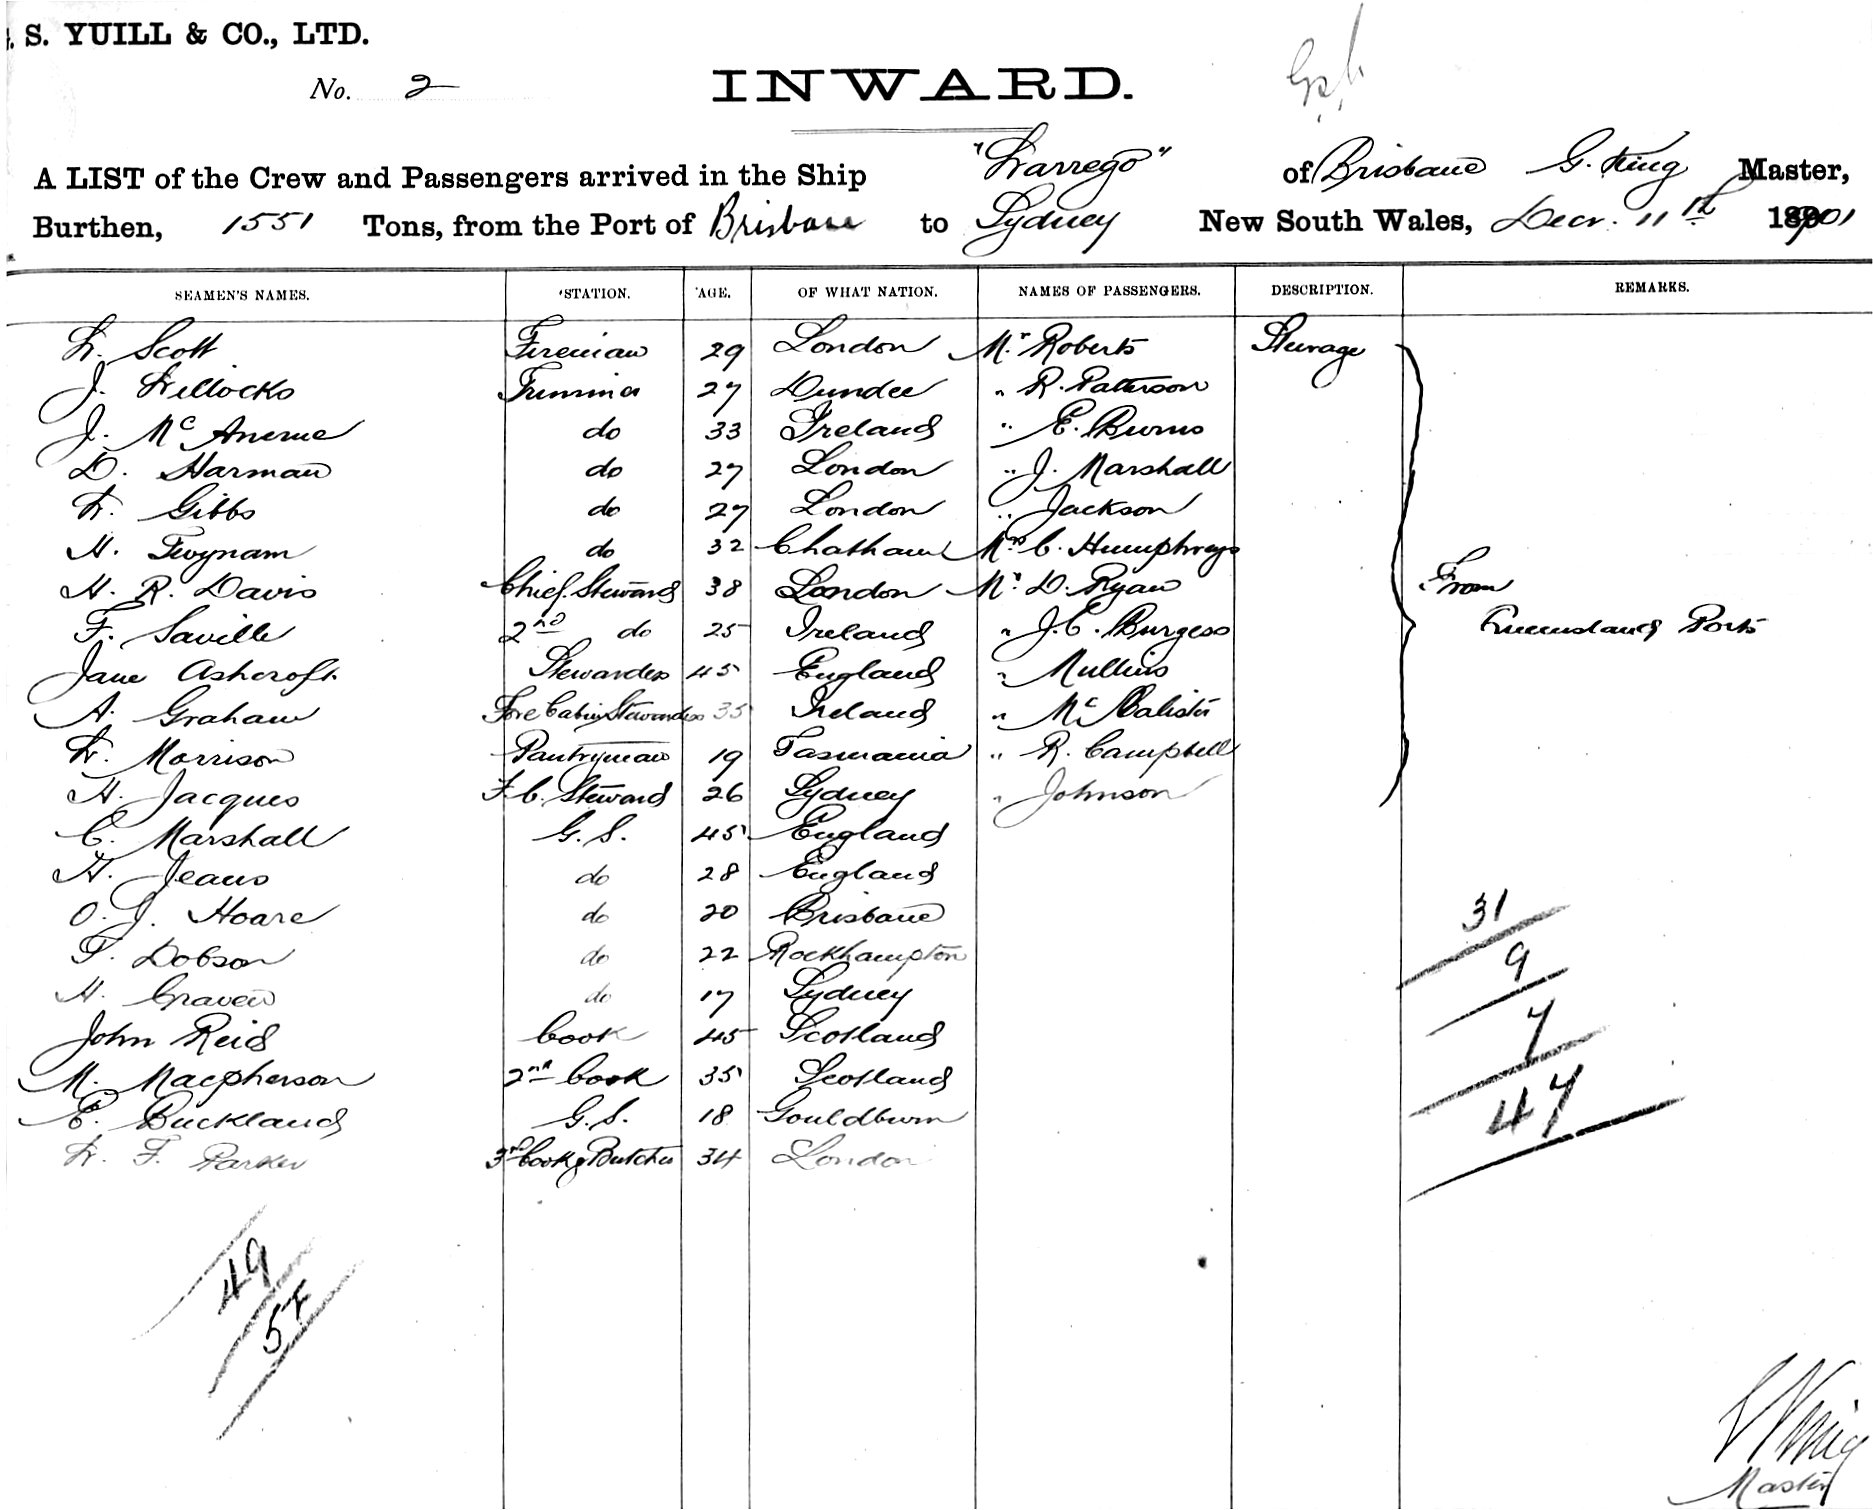 . S. YUILL & CO., LTD.
No. 2
INWARD.
A LIST of the Crew and Passengers arrived in the Ship "Warrego" of Brisbane G. King Master,
Burthen, 1551 Tons, from the Port of Brisbane to Sydney New South Wales, Decr. 11th 1901
SEAMEN'S NAMES. STATION. AGE. OF WHAT NATION. NAMES OF PASSENGERS. DESCRIPTION. REMARKS.
W. Scott Fireman 29 London Mr Roberts Steerage
J. Willocks Trimmer 27 Dundee " R. Patterson
J. Mc do 33 Ireland " E. Burns
D. Harman do 27 London " J. Marshall
W. Gibbs do 27 London " Jackson
H. Twynam do 32 Chatham Mrs C. Humphreys
H. R. Davis Chief Steward 38 London Mr D. Ryan From
F. Saville 2nd do 25 Ireland " J. C. Burgess Queensland Ports
Jane Ashcroft Stewardess 45 England " Mullins
A. Graham Fore Cabin Stewardess 35 Ireland " McCalister
W. Morrison Pantryman 19 Tasmania " R. Campbell
H. Jacques F. C. Steward 26 Sydney " Johnson
C. Marshall G. S. 45 England
H. Jeans do 28 England
O. J. Hoare do 20 Brisbane
F. Dobson do 22 Rockhampton
H. Craven do 17 Sydney
John Reid Cook 45 Scotland
M. Macpherson 2nd Cook 35 Scotland
E. Buckland G. S. 18 Gouldburn
W. F. Parker 3rd Cook & Butcher 34 London
31
9
7
47
49
57
G King
Master